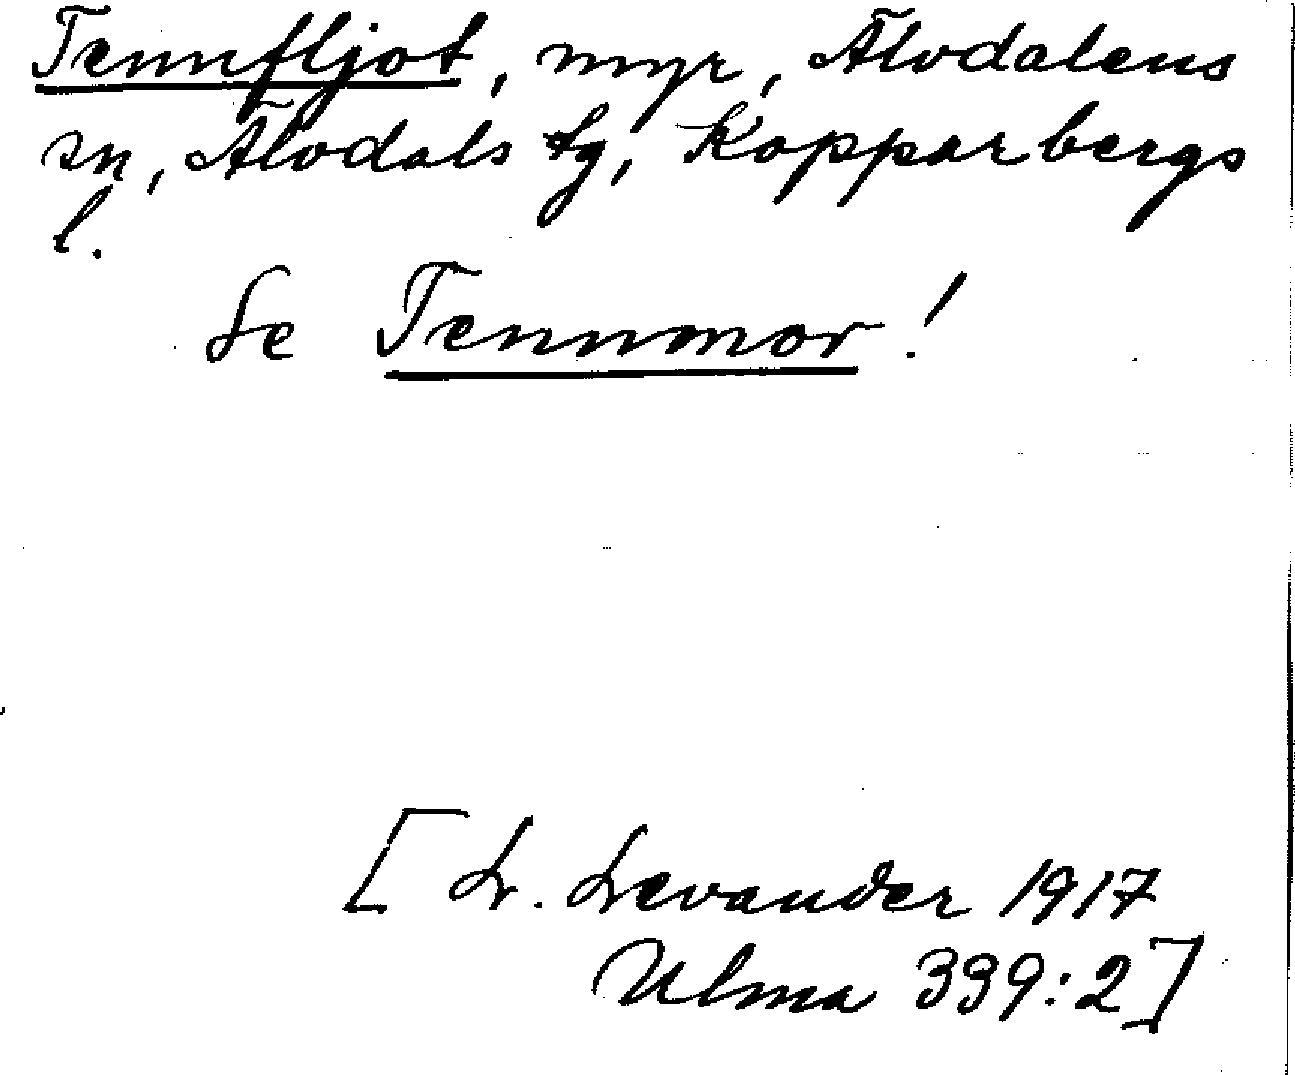 Tennfljot, myr, Älvdalens
sn, Älvdals tg, Kopparbergs
l.
Se Tennmor!
[L. Levander 1917
Ulma 339:2]